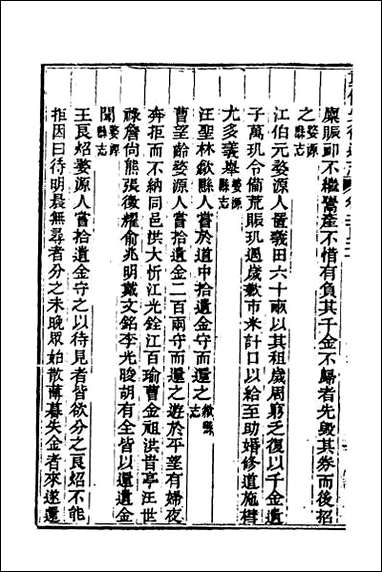 糜賑卹不繼鬻產不惜有負其千金不歸者先毀其券而後招
之婺源縣志
江伯元婺源人置義田六十畝以其租歲周窮乏復以千金遺
子萬璣令備荒賑璣遇歲歉市米計口以給至助婚修道施槥
尤多義舉婺源縣志
汪聖林歙縣人嘗於道中拾遺金守而還之歙縣志
曹望齡婺源人嘗拾遺金二百兩守而還之遊於平望有婦夜
奔拒而不納同邑洪大忻江光銓江百瑜曹金祖洪昔亭汪世
祿詹尙熊張復耀俞兆明戴文銘李光晙胡有全皆以還遺金
聞婺源縣志
王良炤婺源人嘗拾遺金守之以待見者皆欲分之良炤不能
拒因曰待明晨無尋者分之未晚眾始散薄暮失金者來遂還